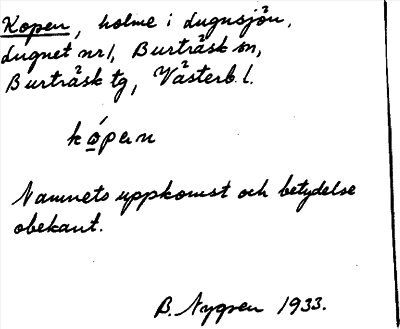 Kopen, holme i Lugnsjön,
Lugnet nr 1, Burträsk sn,
Burträsk tg, Västerb. l.
kópen
Namnets uppkomst och betydelse
obekant.
B. Nygren 1933.